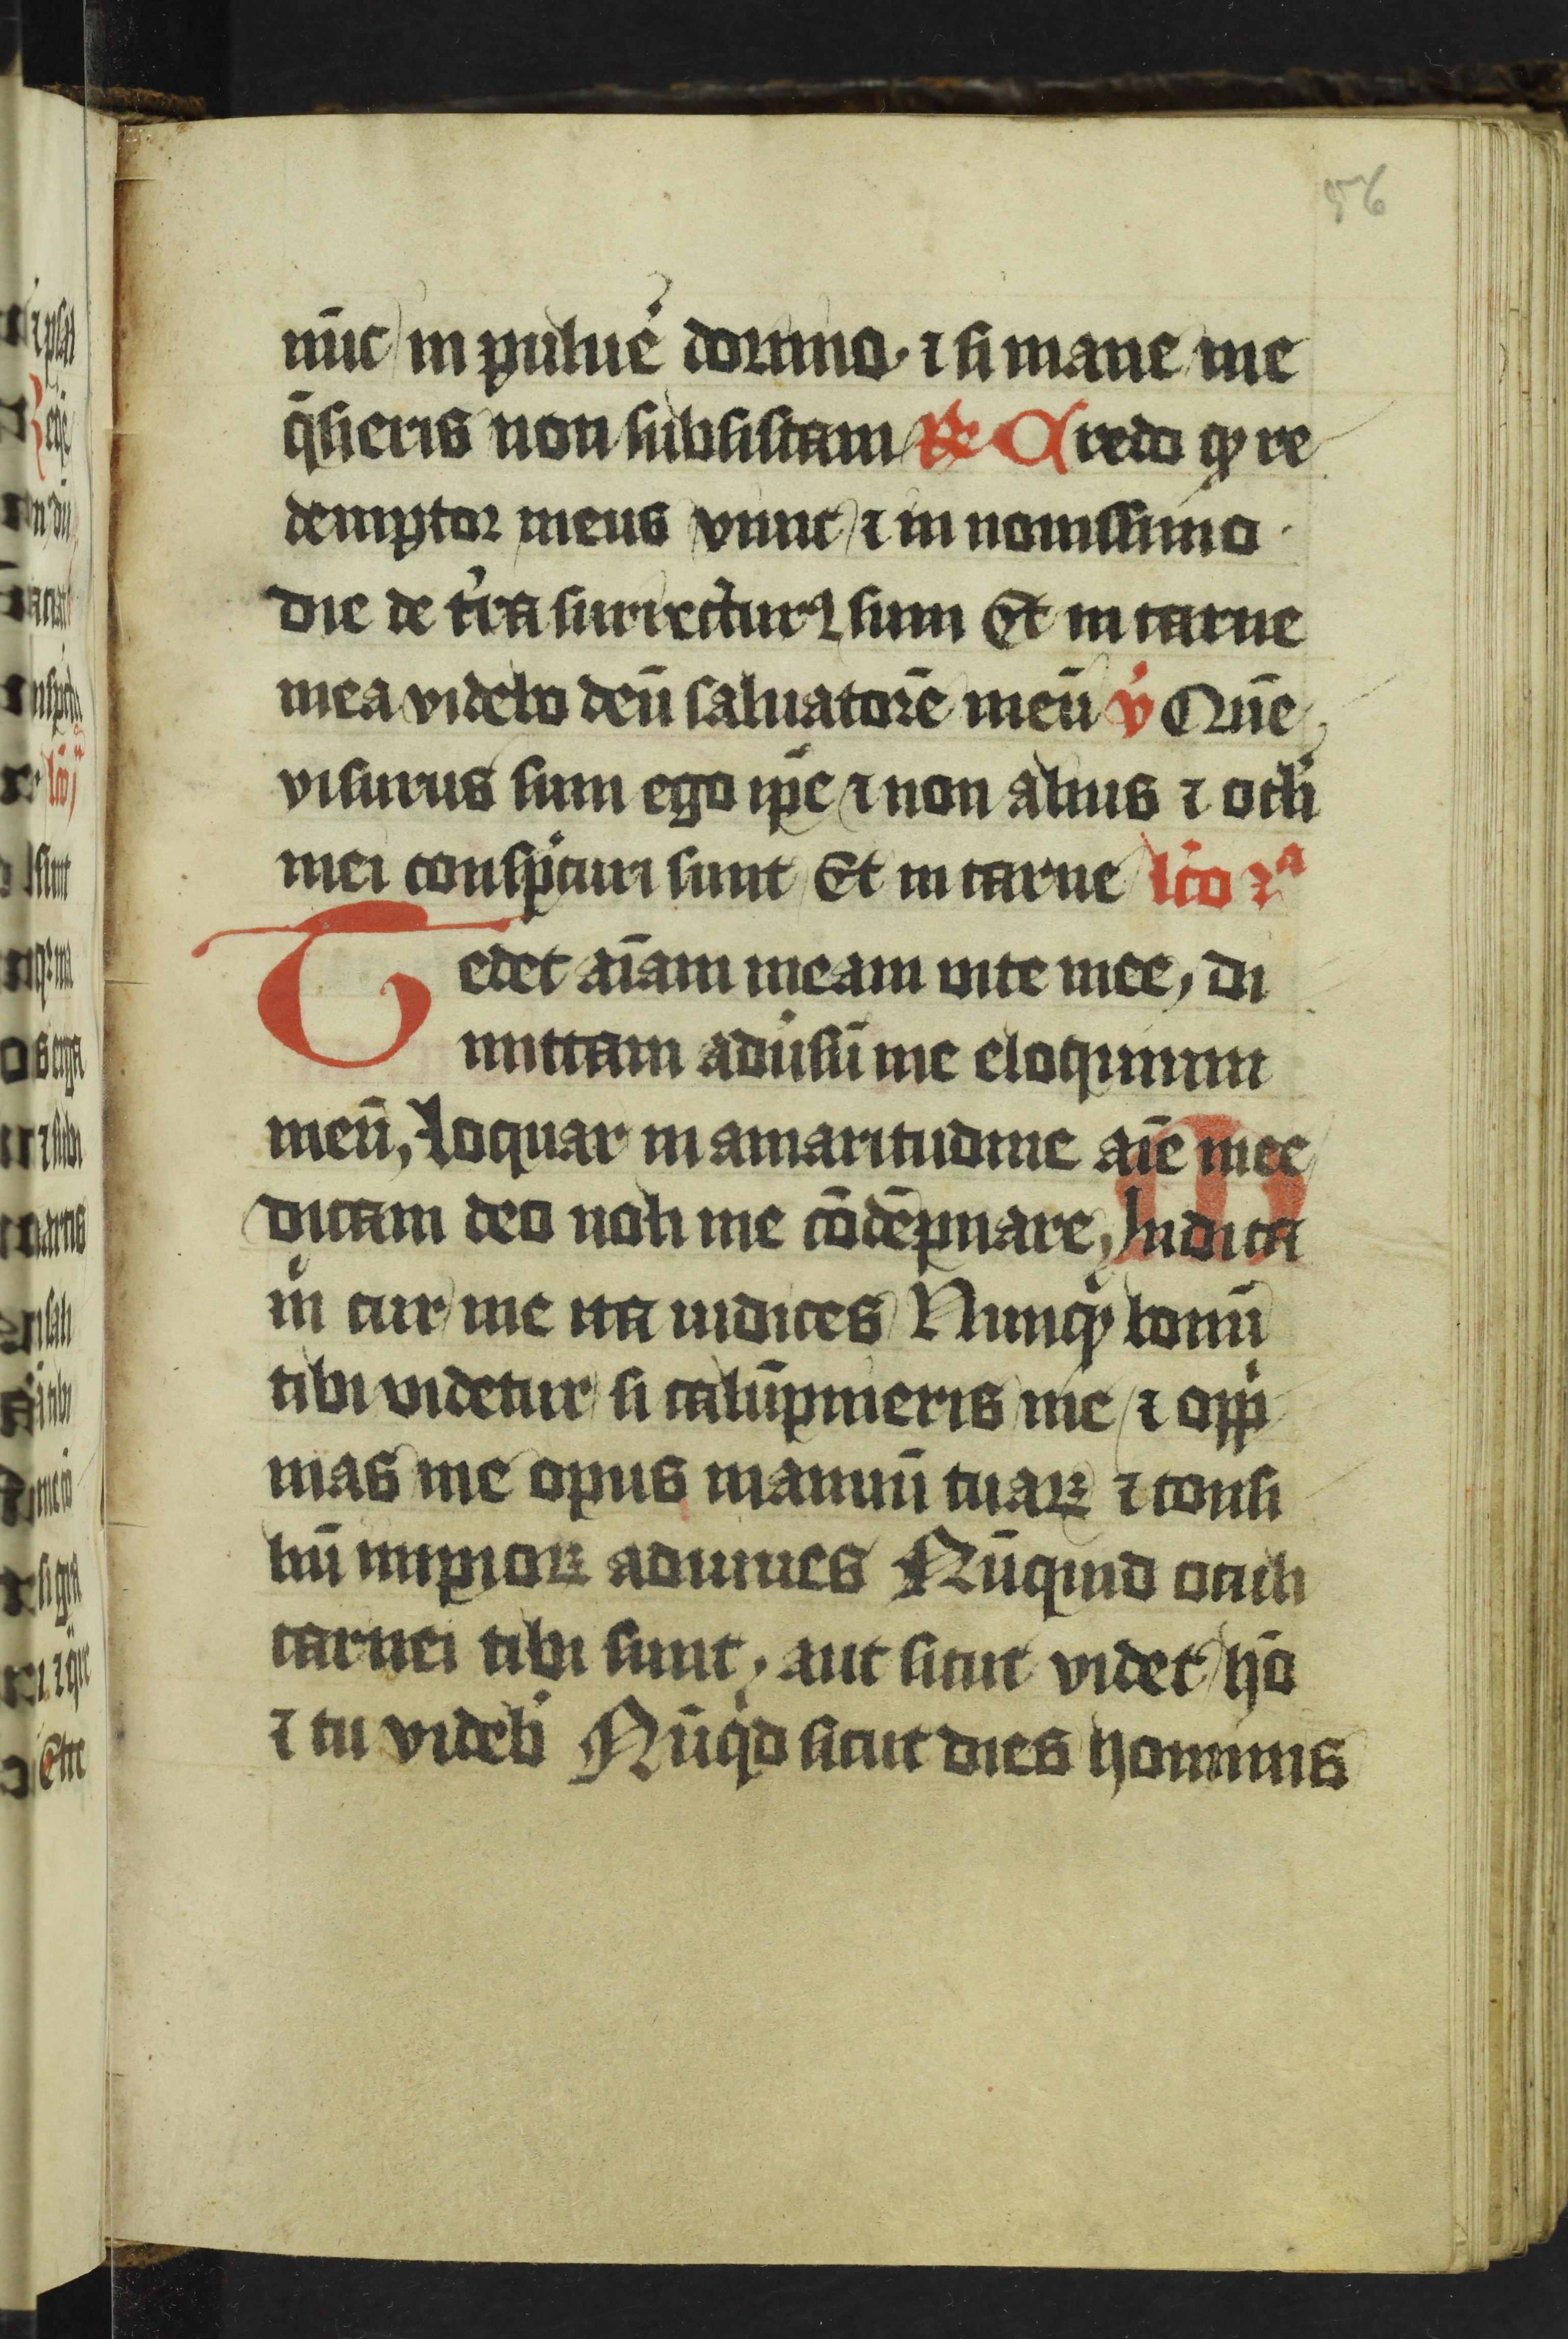 56
nūc in pulue᷑ dormio · ⁊ si mane me
q̄sieris non subsistam ℟ Credo ꝙ re
demptor meus viuit ⁊ in nouissimo
die de t̓ra surrecturꝰ sum Et in carne
mea videbo deū saluatorē meū v̓ Quē
visurus sum ego ip̄e ⁊ non alius ⁊ oc̓li
mei conspc̓turi sunt Et in carne lc̄o 2ᵃ
Tedet aīam meam vite mee, di
mittam adu̓sū me eloquium
meū, Loquar in amaritudine aīe mee
dicam deo noli me cōdēpnare, Indica
m̓ cur me ita iudices Nunqͥ bonū
tibi videtur si calūpnieris me ⁊ opp̓
mas me opus manuū tuaꝝ ⁊ consi
liū impioꝝ adiuues Nūquid oculi
carnei tibi sunt, aut sicut videt hō
⁊ tu videb̓ Nūqͥd sicut dies hominis